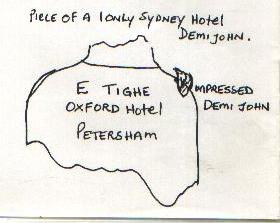 PIECE OF A 1 ONLY SYDNEY HOTEL
DEMI JOHN.
E TIGHE
OXFORD HOTEL
PETERSHAM
IMPRESSED
DEMI JOHN